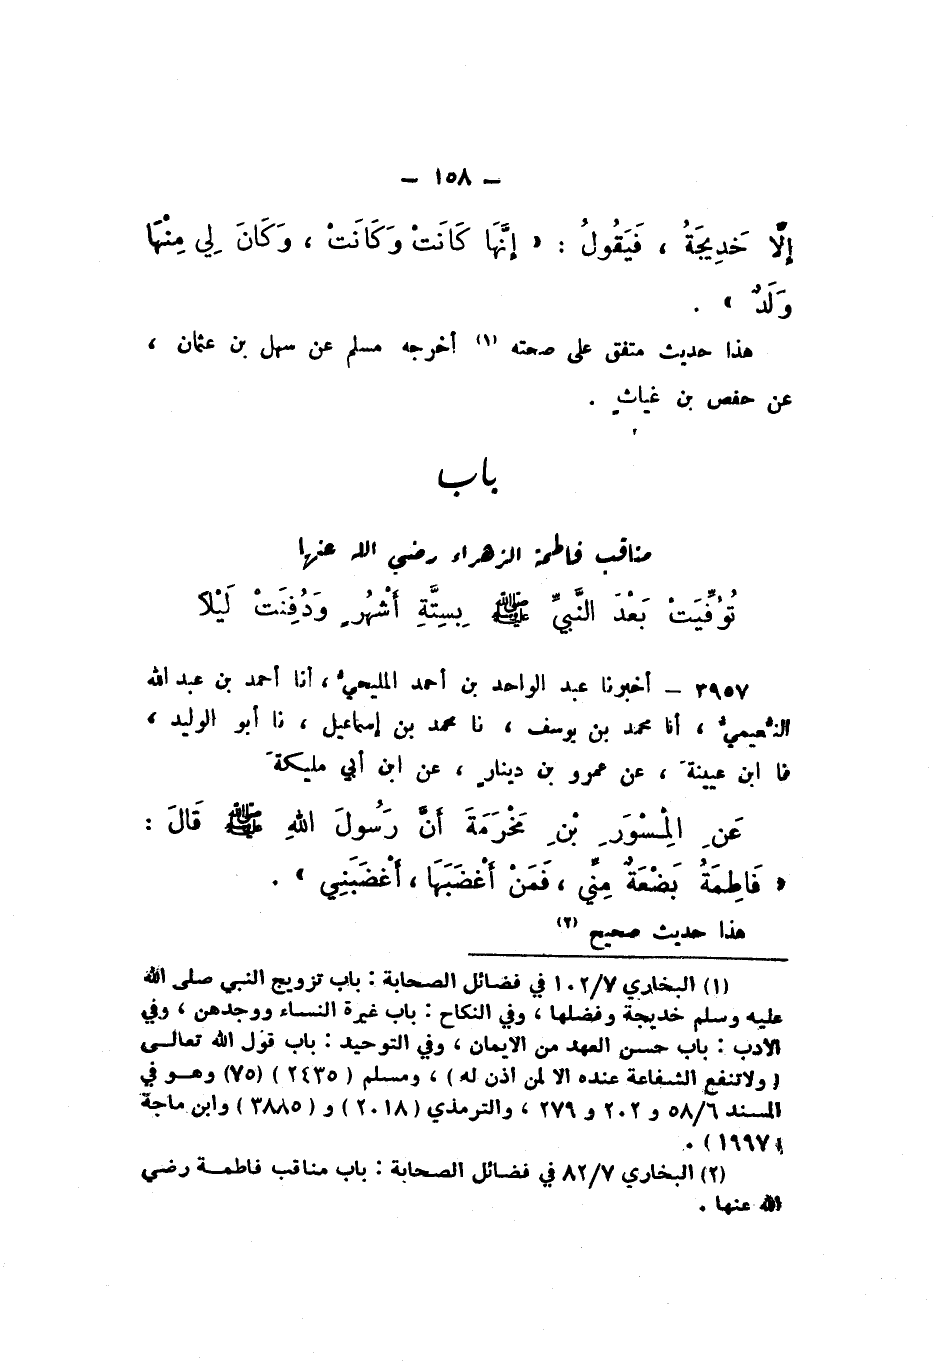 – ١٥٨ –
إِلَّا خَدِيجَةُ ، فَيَقُولُ : « إِنَّهَا كَانَتْ وَكَانَتْ ، وَكَانَ لِي مِنْهَا
وَلَدٌ » .
هذا حديث متفق على صحته (١) أخرجه مسلم عن سهل بن عثمان ،
عن حفص بن غياثٍ .
باب
مناقب فاطمة الزهراء رضي الله عنها
تُوُفِّيَتْ بَعْدَ النَّبِيِّ ﷺ بِسِتَّةِ أَشْهُرٍ وَدُفِنَتْ لَيْلاً
٣٩٥٧ – أخبرنا عبد الواحد بن أحمد المليحيُّ ، أنا أحمد بن عبد الله
النُّعيميُّ ، أنا محمد بن يوسف ، نا محمد بن إسماعيل ، نا أبو الوليد ،
نا ابن عيينةَ ، عن عمرو بن دينارٍ ، عن ابن أبي مليكةَ
عَنِ الْمِسْوَرِ بْنِ مَخْرَمَةَ أَنَّ رَسُولَ اللهِ ﷺ قَالَ :
« فَاطِمَةُ بَضْعَةٌ مِنِّي ، فَمَنْ أَغْضَبَهَا ، أَغْضَبَنِي » .
هذا حديث صحيح (٢)
(١) البخاري ١٠٢/٧ في فضائل الصحابة : باب تزويج النبي صلى الله
عليه وسلم خديجة وفضلها ، وفي النكاح : باب غيرة النساء ووجدهن ، وفي
الأدب : باب حسن العهد من الايمان ، وفي التوحيد : باب قول الله تعالى
( ولاتنفع الشفاعة عنده الا لمن أذن له ) ، ومسلم ( ٢٤٣٥ ) (٧٥) وهو في
المسند ٥٨/٦ و ٢٠٢ و ٢٧٩ ، والترمذي ( ٢٠١٨ ) و ( ٣٨٨٥ ) وابن ماجة
( ١٩٩٧ ) .
(٢) البخاري ٨٢/٧ في فضائل الصحابة : باب مناقب فاطمة رضي
الله عنها .